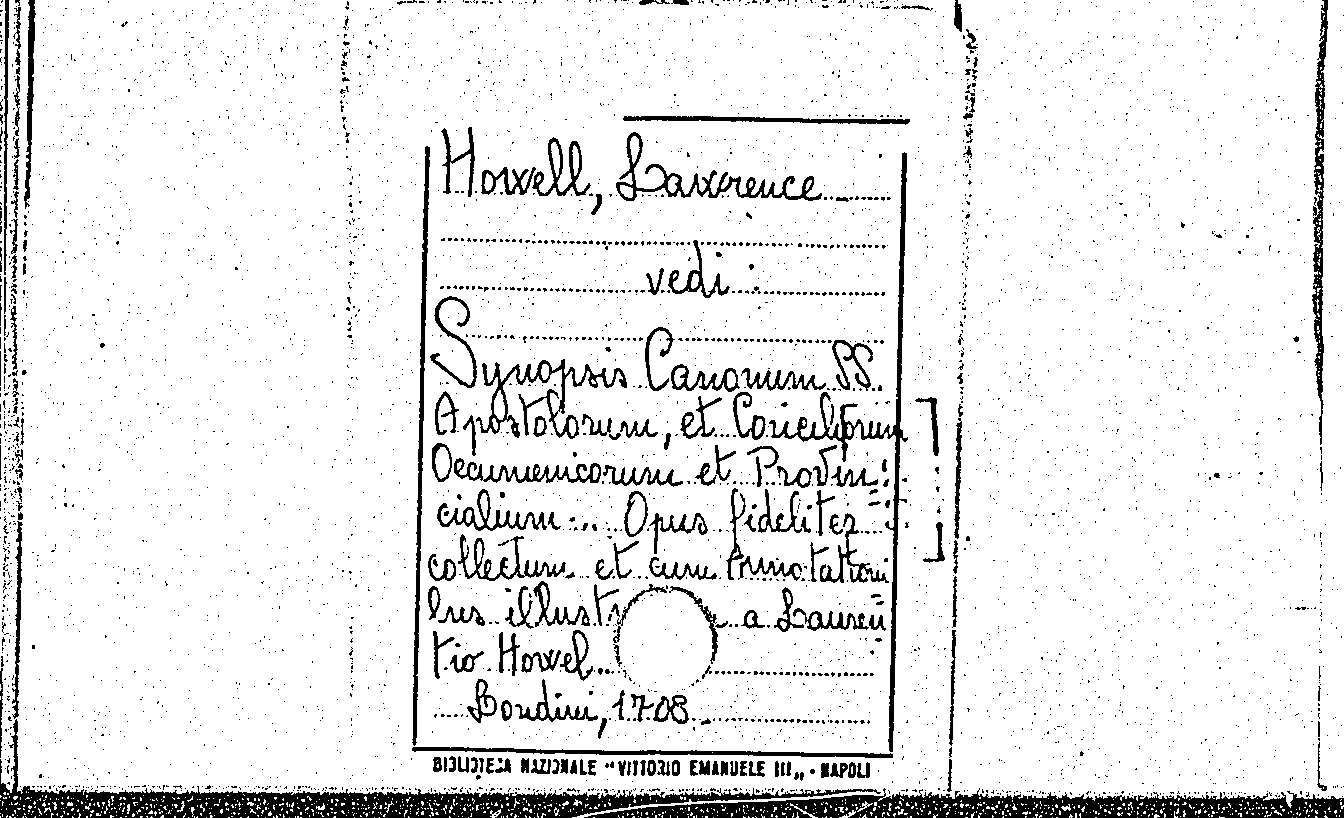 Howell, Lawrence
vedi:
Synopsis Canonum SS.
Apostolorum, et Conciliorum
Oecumenicorum et Provin=
cialium... Opus fideliter
collectum et cum Annotationi
bus illust a Lauren=
tio Howel..
Londini, 1708.
BIBLIOTECA NAZIONALE "VITTORIO EMANUELE III„ - NAPOLI